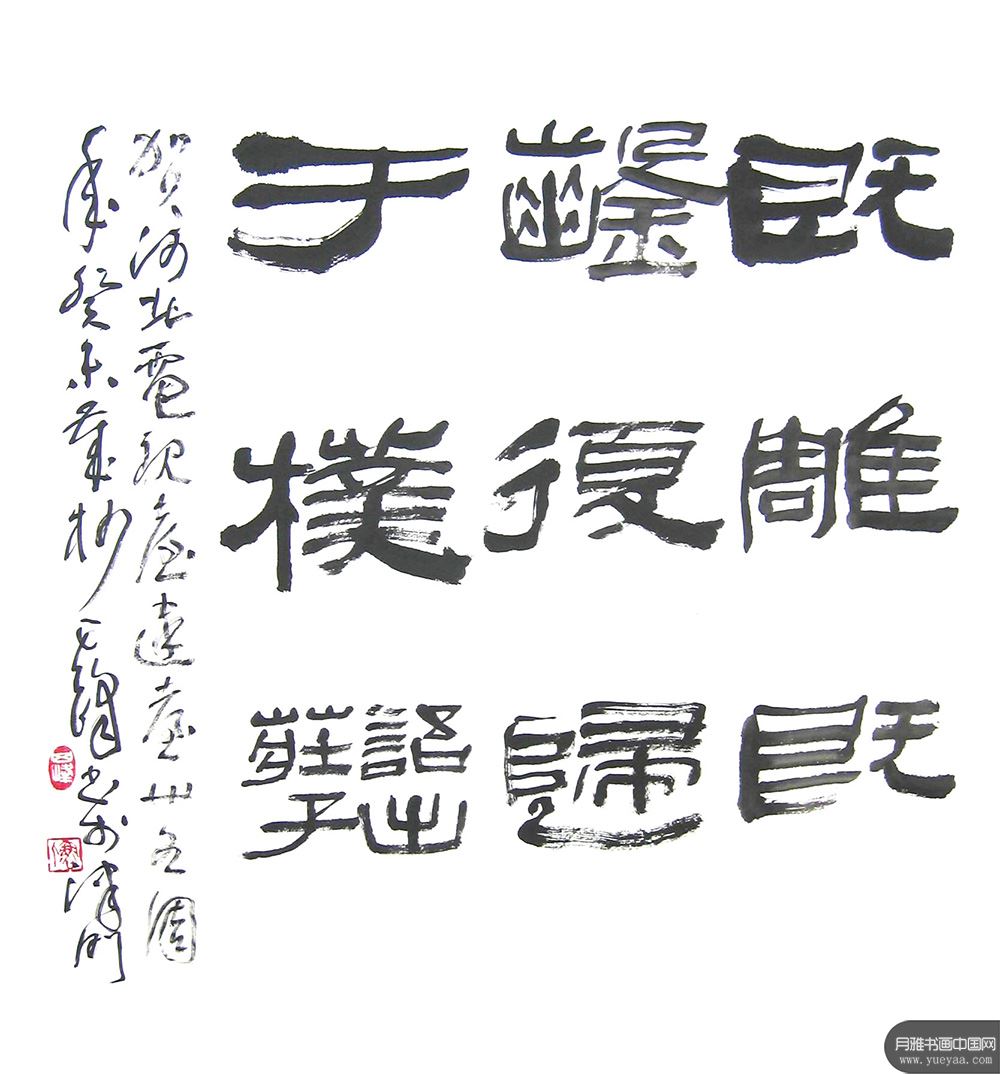 既雕既
鑿復歸
于樸
語出
莊子
賀河北電視臺建臺卅五週
年癸未歲杪書於津門
月雅书画中国网
www.yueyaa.com